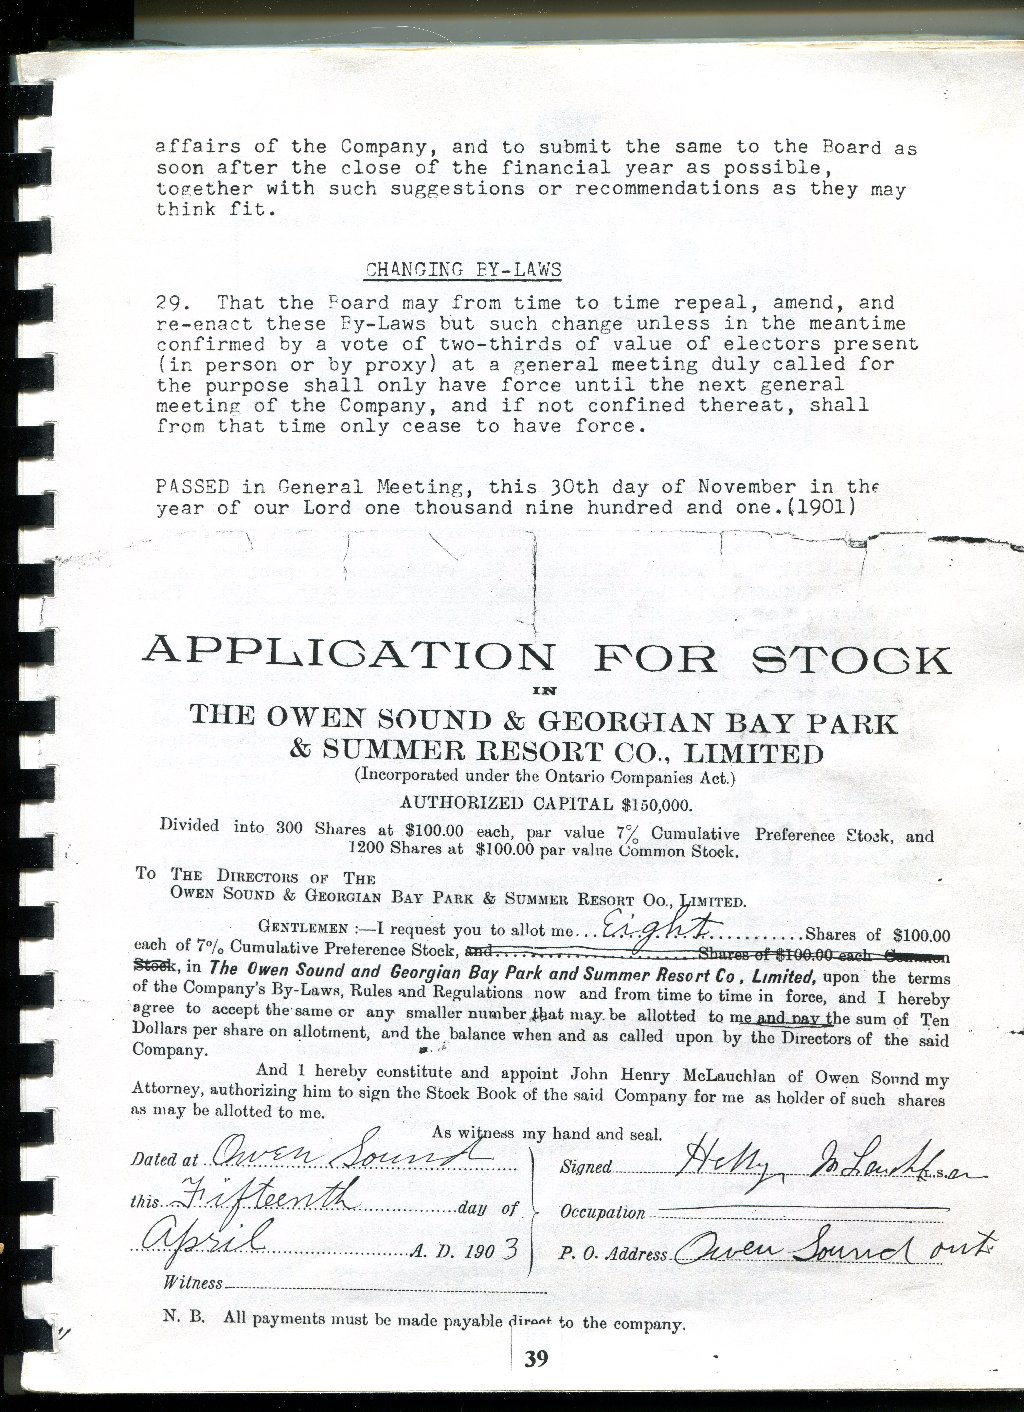 affairs of the Company, and to submit the same to the Board as
soon after the close of the financial year as possible,
together with such suggestions or recommendations as they may
think fit.
CHANGING BY-LAWS
29. That the Board may from time to time repeal, amend, and
re-enact these By-Laws but such change unless in the meantime
confirmed by a vote of two-thirds of value of electors present
(in person or by proxy) at a general meeting duly called for
the purpose shall only have force until the next general
meeting of the Company, and if not confined thereat, shall
from that time only cease to have force.
PASSED in General Meeting, this 30th day of November in the
year of our Lord one thousand nine hundred and one.(1901)
APPLICATION FOR STOCK
IN
THE OWEN SOUND & GEORGIAN BAY PARK
& SUMMER RESORT CO., LIMITED
(Incorporated under the Ontario Companies Act.)
AUTHORIZED CAPITAL $150,000.
Divided into 300 Shares at $100.00 each, par value 7% Cumulative Preference Stock, and
1200 Shares at $100.00 par value Common Stock.
To THE DIRECTORS OF THE
OWEN SOUND & GEORGIAN BAY PARK & SUMMER RESORT CO., LIMITED.
GENTLEMEN :—I request you to allot me...Eight...........Shares of $100.00
each of 7% Cumulative Preference Stock, and..........................Shares of $100.00 each Common
Stock, in The Owen Sound and Georgian Bay Park and Summer Resort Co, Limited, upon the terms
of the Company's By-Laws, Rules and Regulations now and from time to time in force, and I hereby
agree to accept the same or any smaller number that may be allotted to me and pay the sum of Ten
Dollars per share on allotment, and the balance when and as called upon by the Directors of the said
Company.
And I hereby constitute and appoint John Henry McLauchlan of Owen Sound my
Attorney, authorizing him to sign the Stock Book of the said Company for me as holder of such shares
as may be allotted to me.
As witness my hand and seal.
Dated at Owen Sound
Signed
this Fifteenth day of
Occupation
April A. D. 1903
P. O. Address Owen Sound ont
Witness
N. B. All payments must be made payable direct to the company.
39